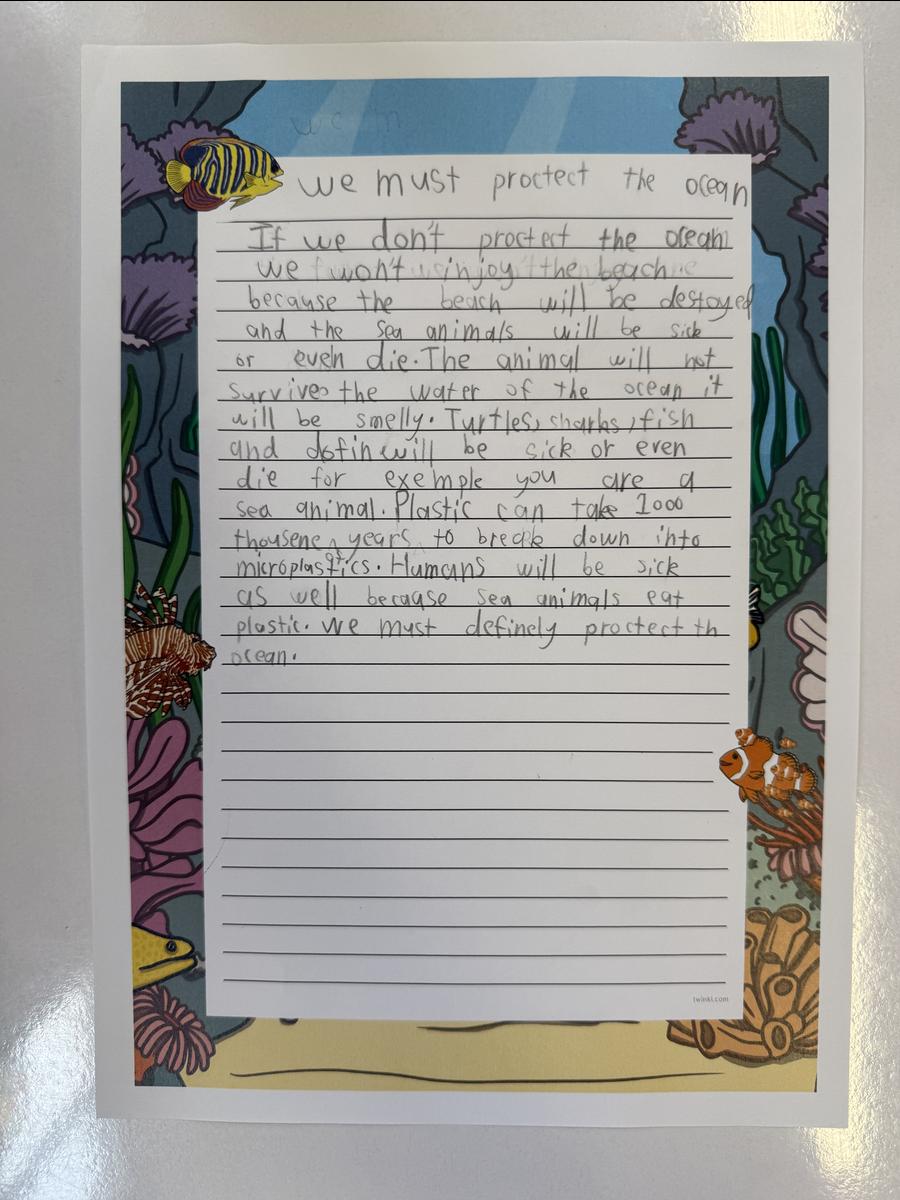 we must proctect the ocean
If we don't proctect the ocean
we won't injoy the beach
because the beach will be destoyed
and the sea animals will be sick
or even die. The animal will not
survives the water of the ocean it
will be smelly. Turtles, sharks, fish
and dofin will be sick or even
die for exemple you are a
sea animal. Plastic can take 1000
thousene years to break down into
microplastics. Humans will be sick
as well because sea animals eat
plastic. we must definely proctect th
ocean.
twinkl.com